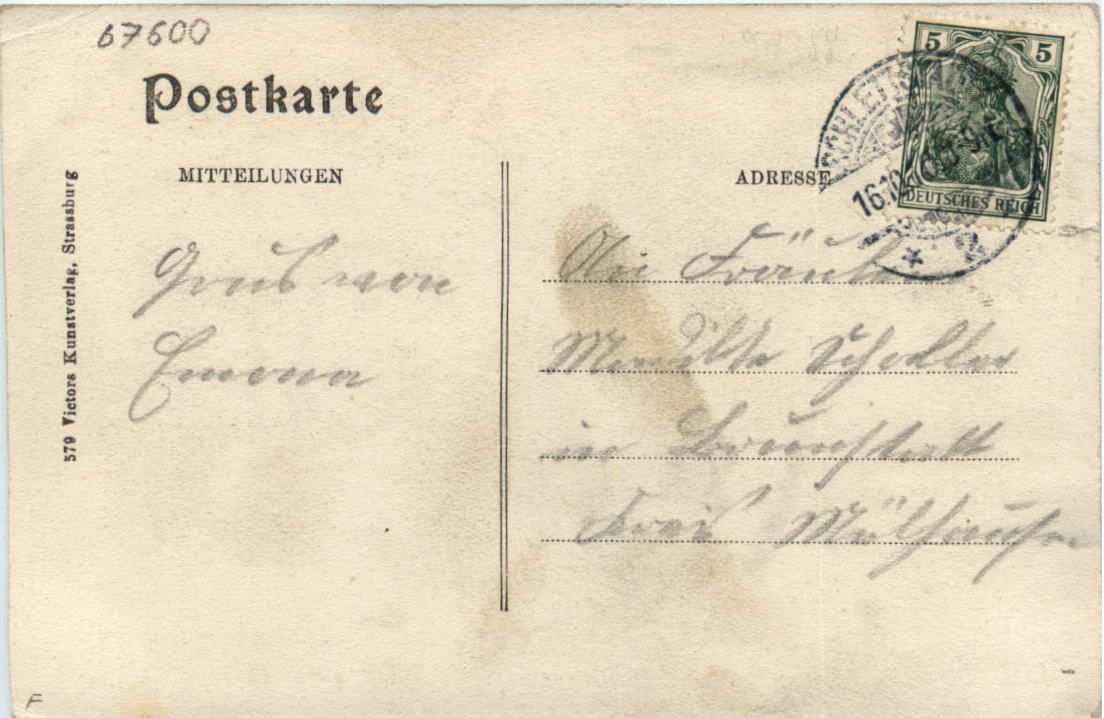 67600
Postkarte
MITTEILUNGEN
ADRESSE
5 5
DEUTSCHES REICH
16.10.
* 2
579 Victors Kunstverlag, Strassburg
Grus von
Emma
An Fräul
Schaller
in Brunstatt
Kreis Mülhausen
F